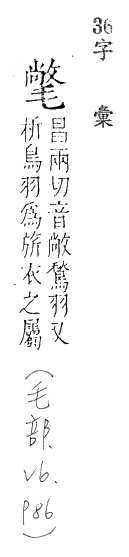 36字彙
氅
昌兩切音敞鶖羽又
析鳥羽爲旂衣之屬
(毛部、V6、P86)